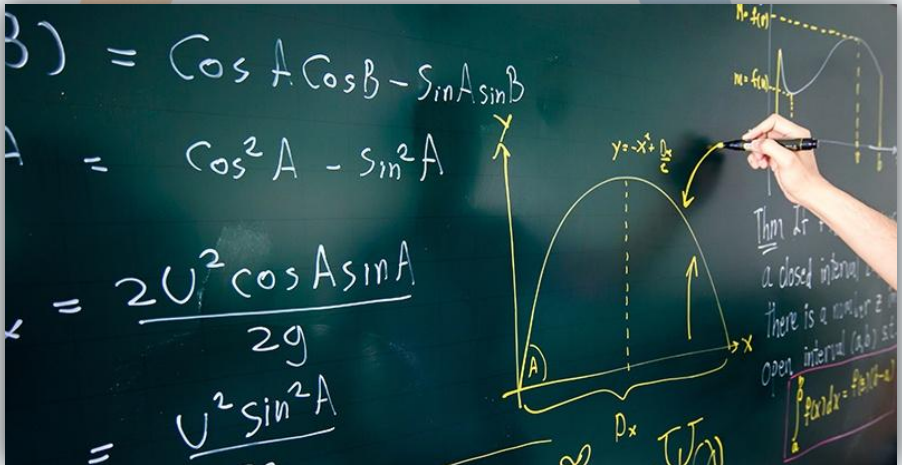 B) = Cos A Cos B - Sin A sin B
A = Cos² A - Sin² A
x = 2U² cos A sin A / 2g
= U² sin² A
y
y = -x² +
A
x
Dx
∞
M = f(
m = f(
Thm If
a closed interval
there is a number z
open interval (a,b) s.t.
∫ f(x)dx = f(z)(b-a)